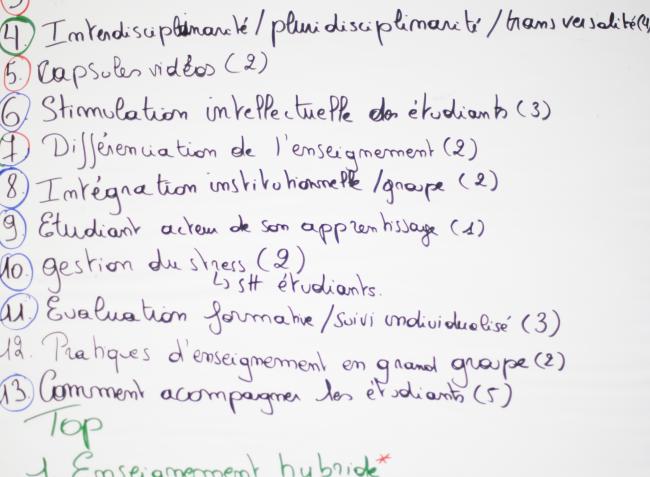 3
4. Interdisciplinarité/pluridisciplinarité/transversalité(4)
5. Capsules vidéos (2)
6 Stimulation intellectuelle des étudiants (3)
7. Différenciation de l'enseignement (2)
8. Intégration institutionnelle/groupe (2)
9 Etudiant acteur de son apprentissage (1)
10. gestion du stress (2)
↳ étudiants.
11. Evaluation formative/suivi individualisé (3)
12. Pratiques d'enseignement en grand groupe (2)
13. Comment acompagner les étudiants (5)
Top
1 Enseignement hybride*